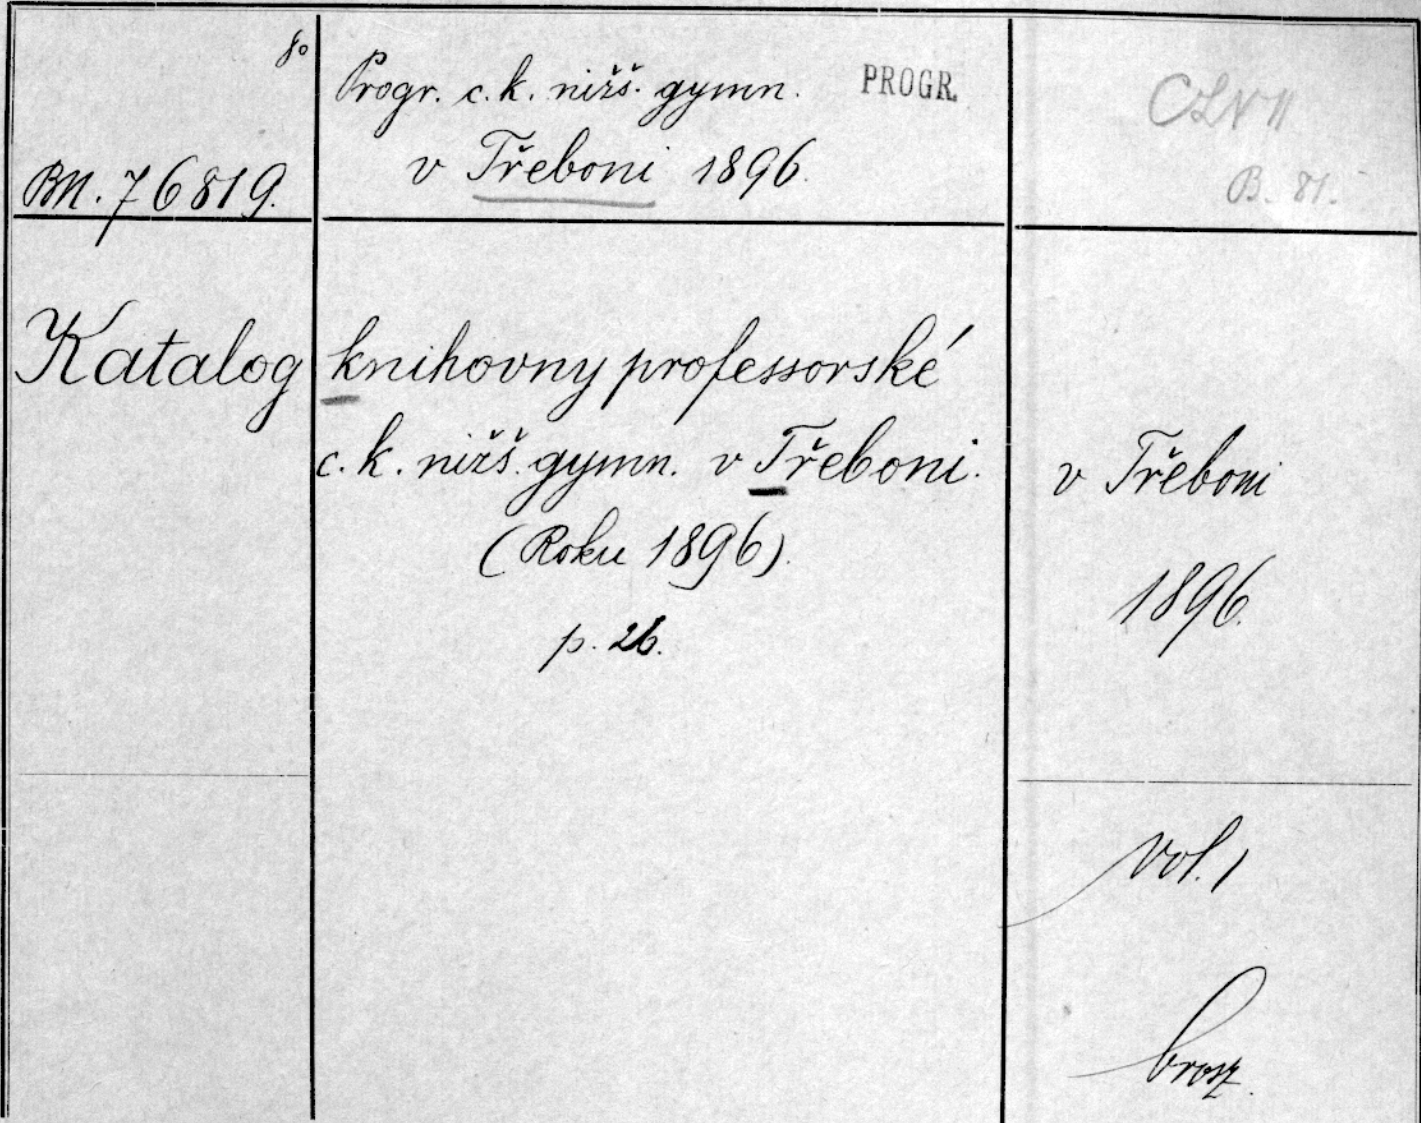 8o
Progr. c. k. nižš. gymn. PROGR.
v Třeboni 1896.
BM. 76819.
B. 81.
Katalog knihovny professorské
c. k. nižš. gymn. v Třeboni.
(Roku 1896).
p. 26.
v Třeboni
1896.
vol. 1
brosz.